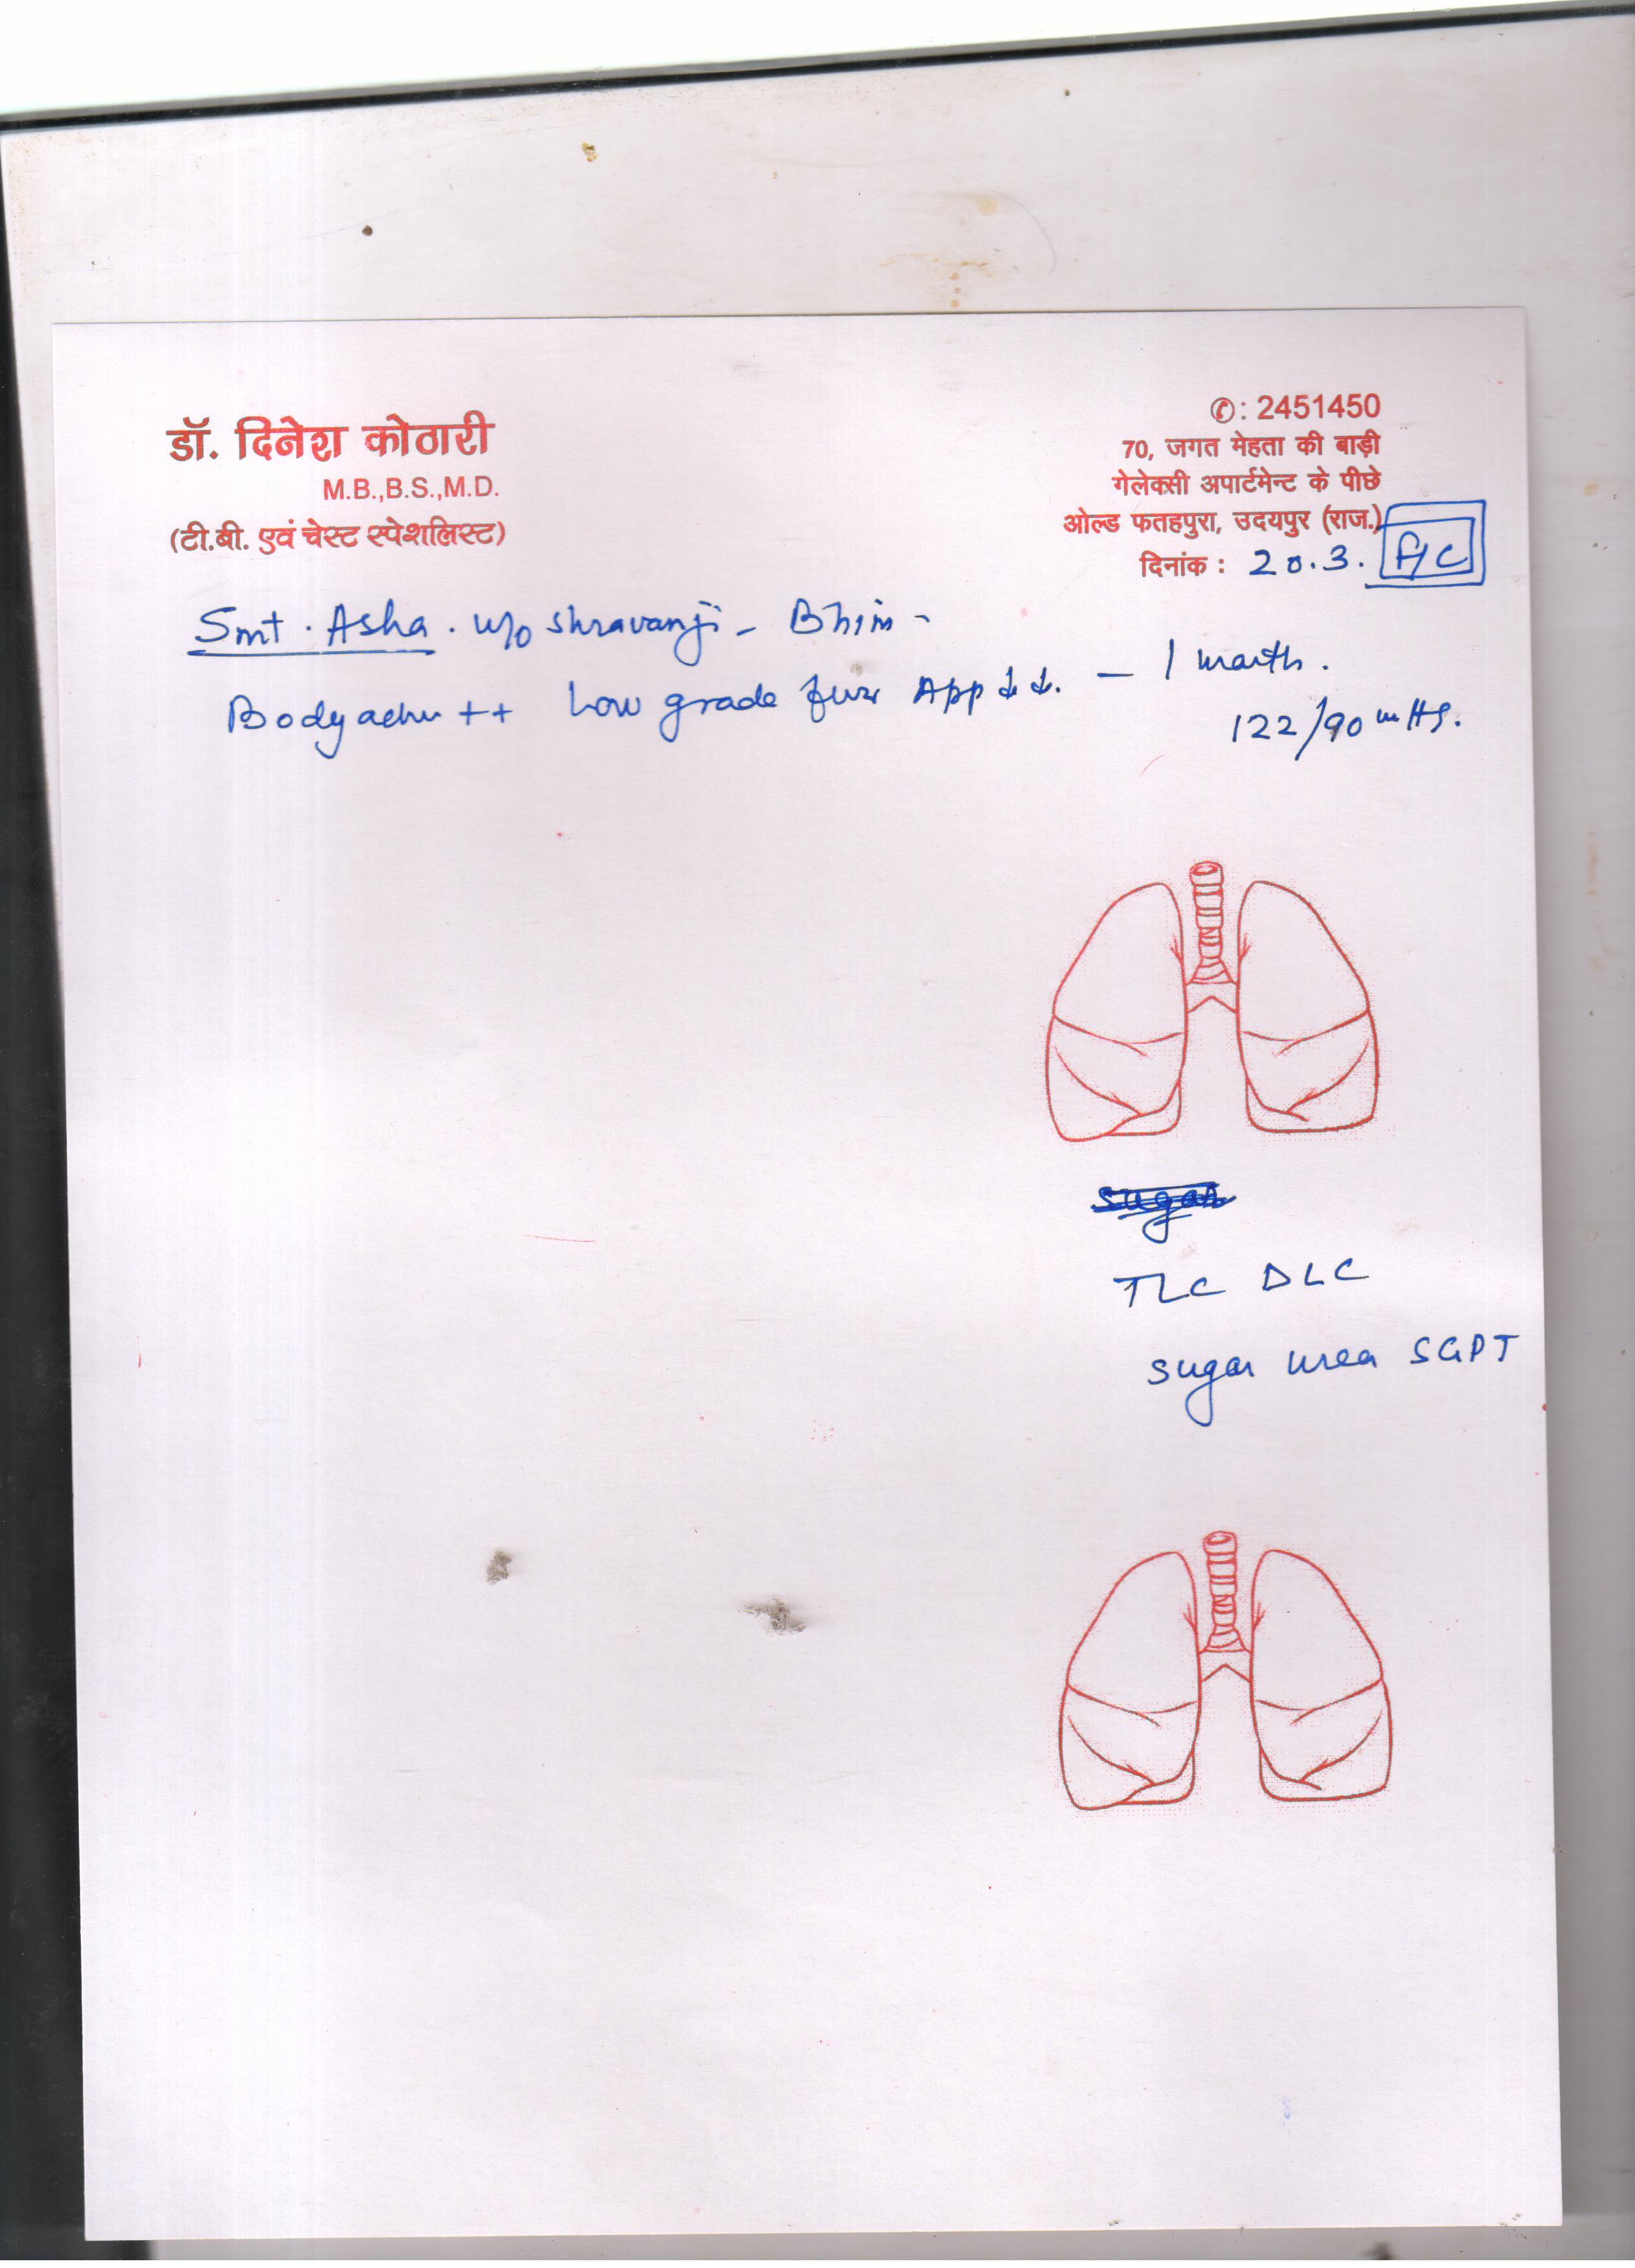 डॉ. दिनेश कोठारी
M.B.,B.S.,M.D.
(टी.बी. एवं चेस्ट स्पेशलिस्ट)
✆: 2451450
70, जगत मेहता की बाड़ी
गेलेक्सी अपार्टमेन्ट के पीछे
ओल्ड फतहपुरा, उदयपुर (राज.)
दिनांक : 20.3.
Smt. Asha. w/o Shravanji - Bhim -
Bodyache ++ Low grade fever App ↓↓. — 1 month.
122/90 mHg.
sugar
TLC DLC
sugar urea SGPT